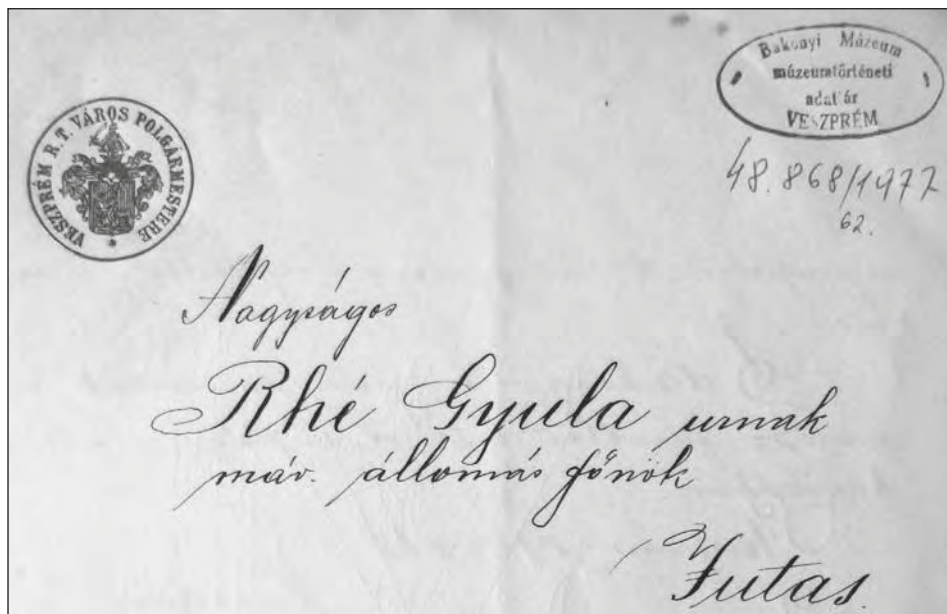 VESZPRÉM R. T. VÁROS POLGÁRMESTERE
Bakonyi Múzeum
múzeumtörténeti
adattár
VESZPRÉM
48.868/1977
62.
Nagyságos
Rhé Gyula urnak
máv. állomás főnök
Jutas.